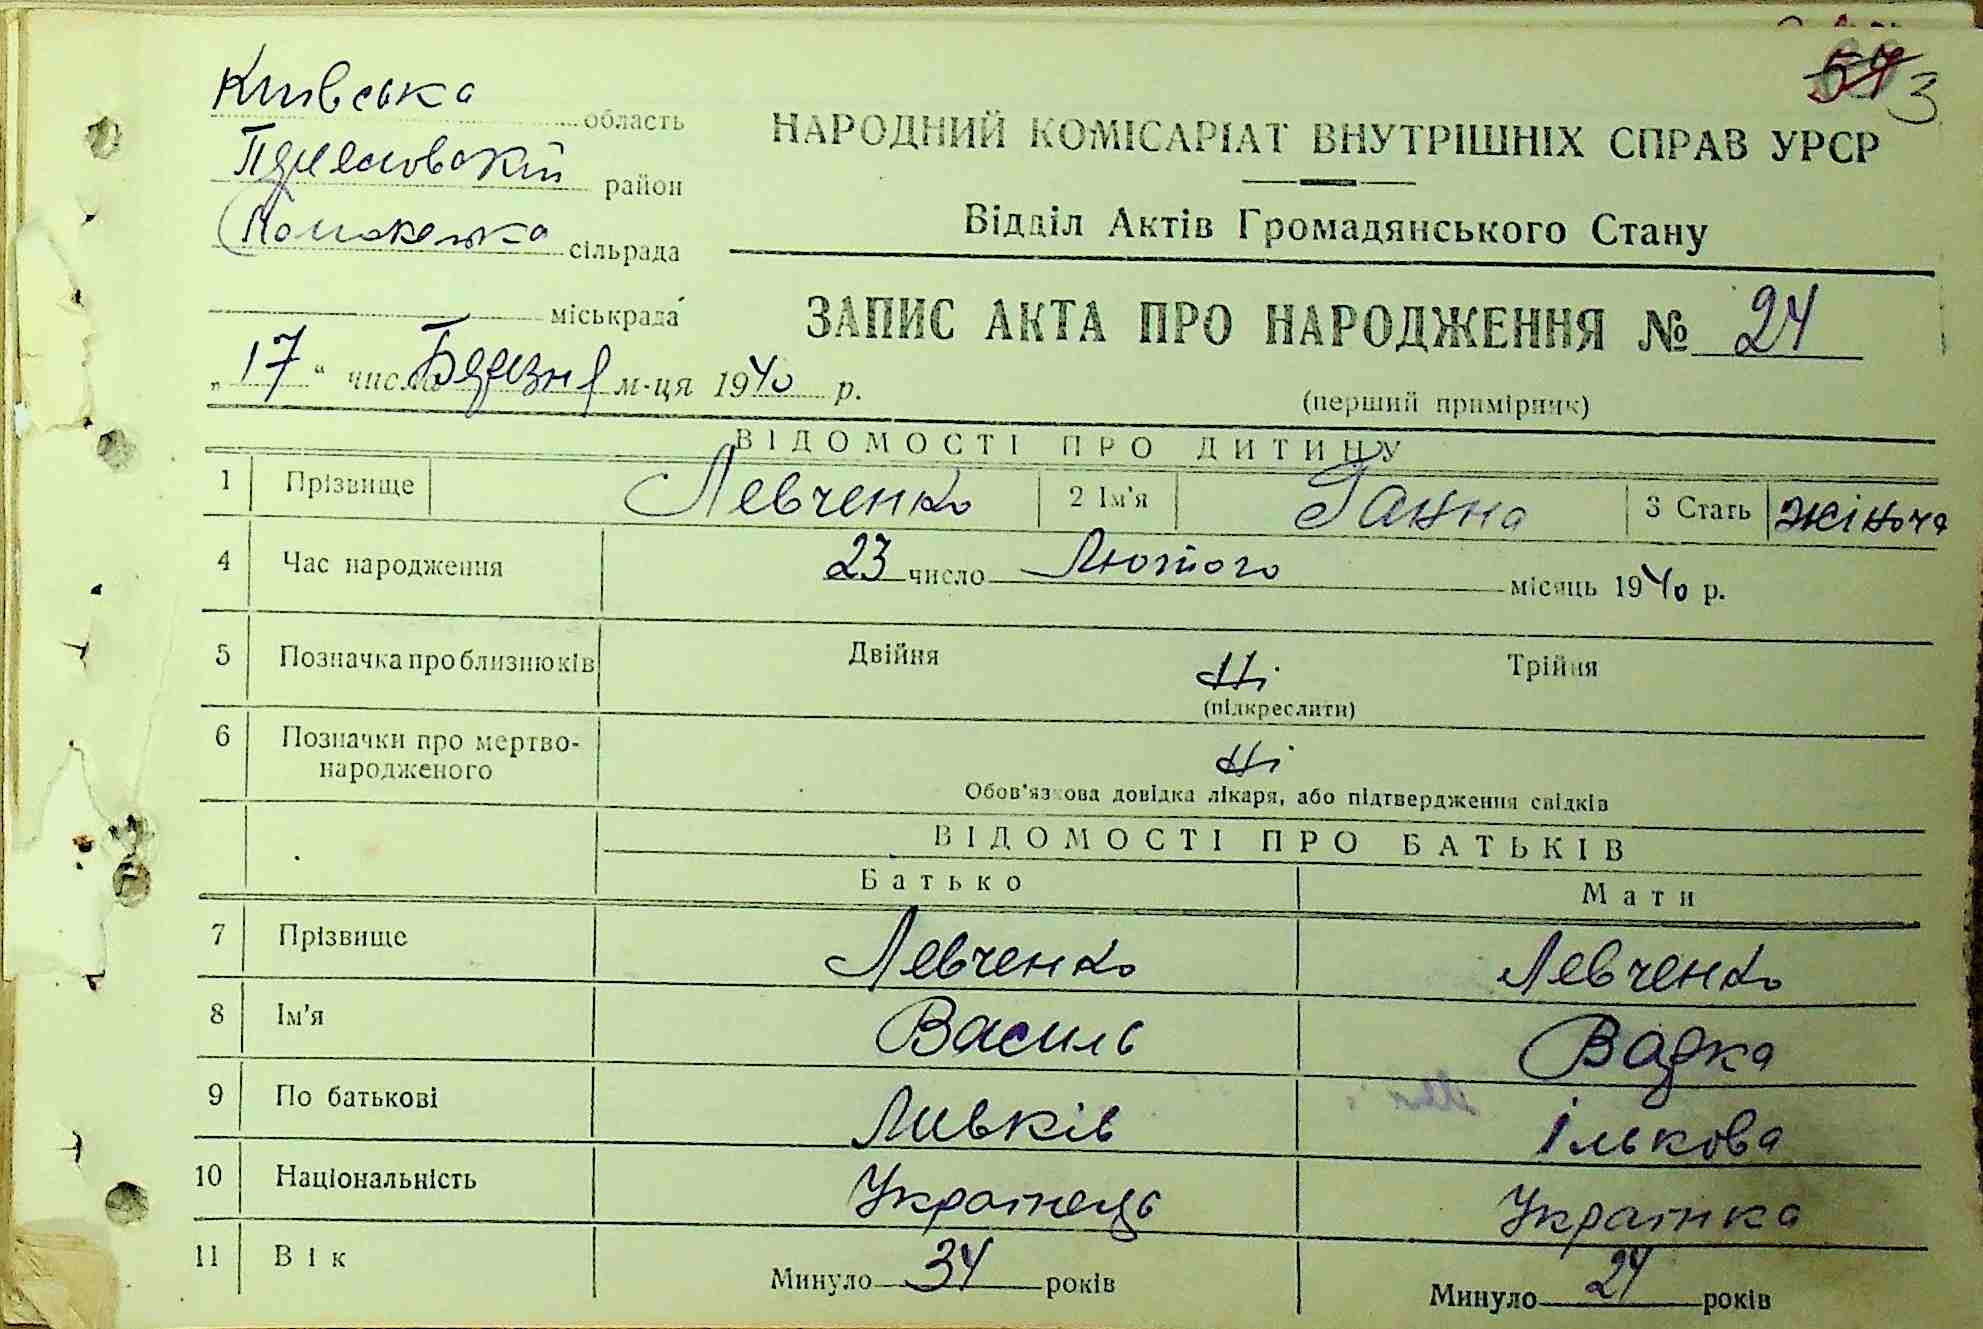 Київська область
район
сільрада
міськрада
„17“ число Березня м-ця 1940 р.
3
НАРОДНИЙ КОМІСАРІАТ ВНУТРІШНІХ СПРАВ УРСР
Відділ Актів Громадянського Стану
ЗАПИС АКТА ПРО НАРОДЖЕННЯ № 24
(перший примірник)
ВІДОМОСТІ ПРО ДИТИНУ
1 Прізвище Левченко 2 Ім'я Ганна 3 Стать жіноча
4 Час народження 23 число Лютого місяць 1940 р.
5 Позначка про близнюків Двійня Ні Трійня
(підкреслити)
6 Позначки про мертво-
народженого Ні
Обов'язкова довідка лікаря, або підтвердження свідків
ВІДОМОСТІ ПРО БАТЬКІВ
Батько Мати
7 Прізвище Левченко Левченко
8 Ім'я Василь
9 По батькові Ількова
10 Національність Українець Українка
11 Вік Минуло 34 років Минуло 24 років